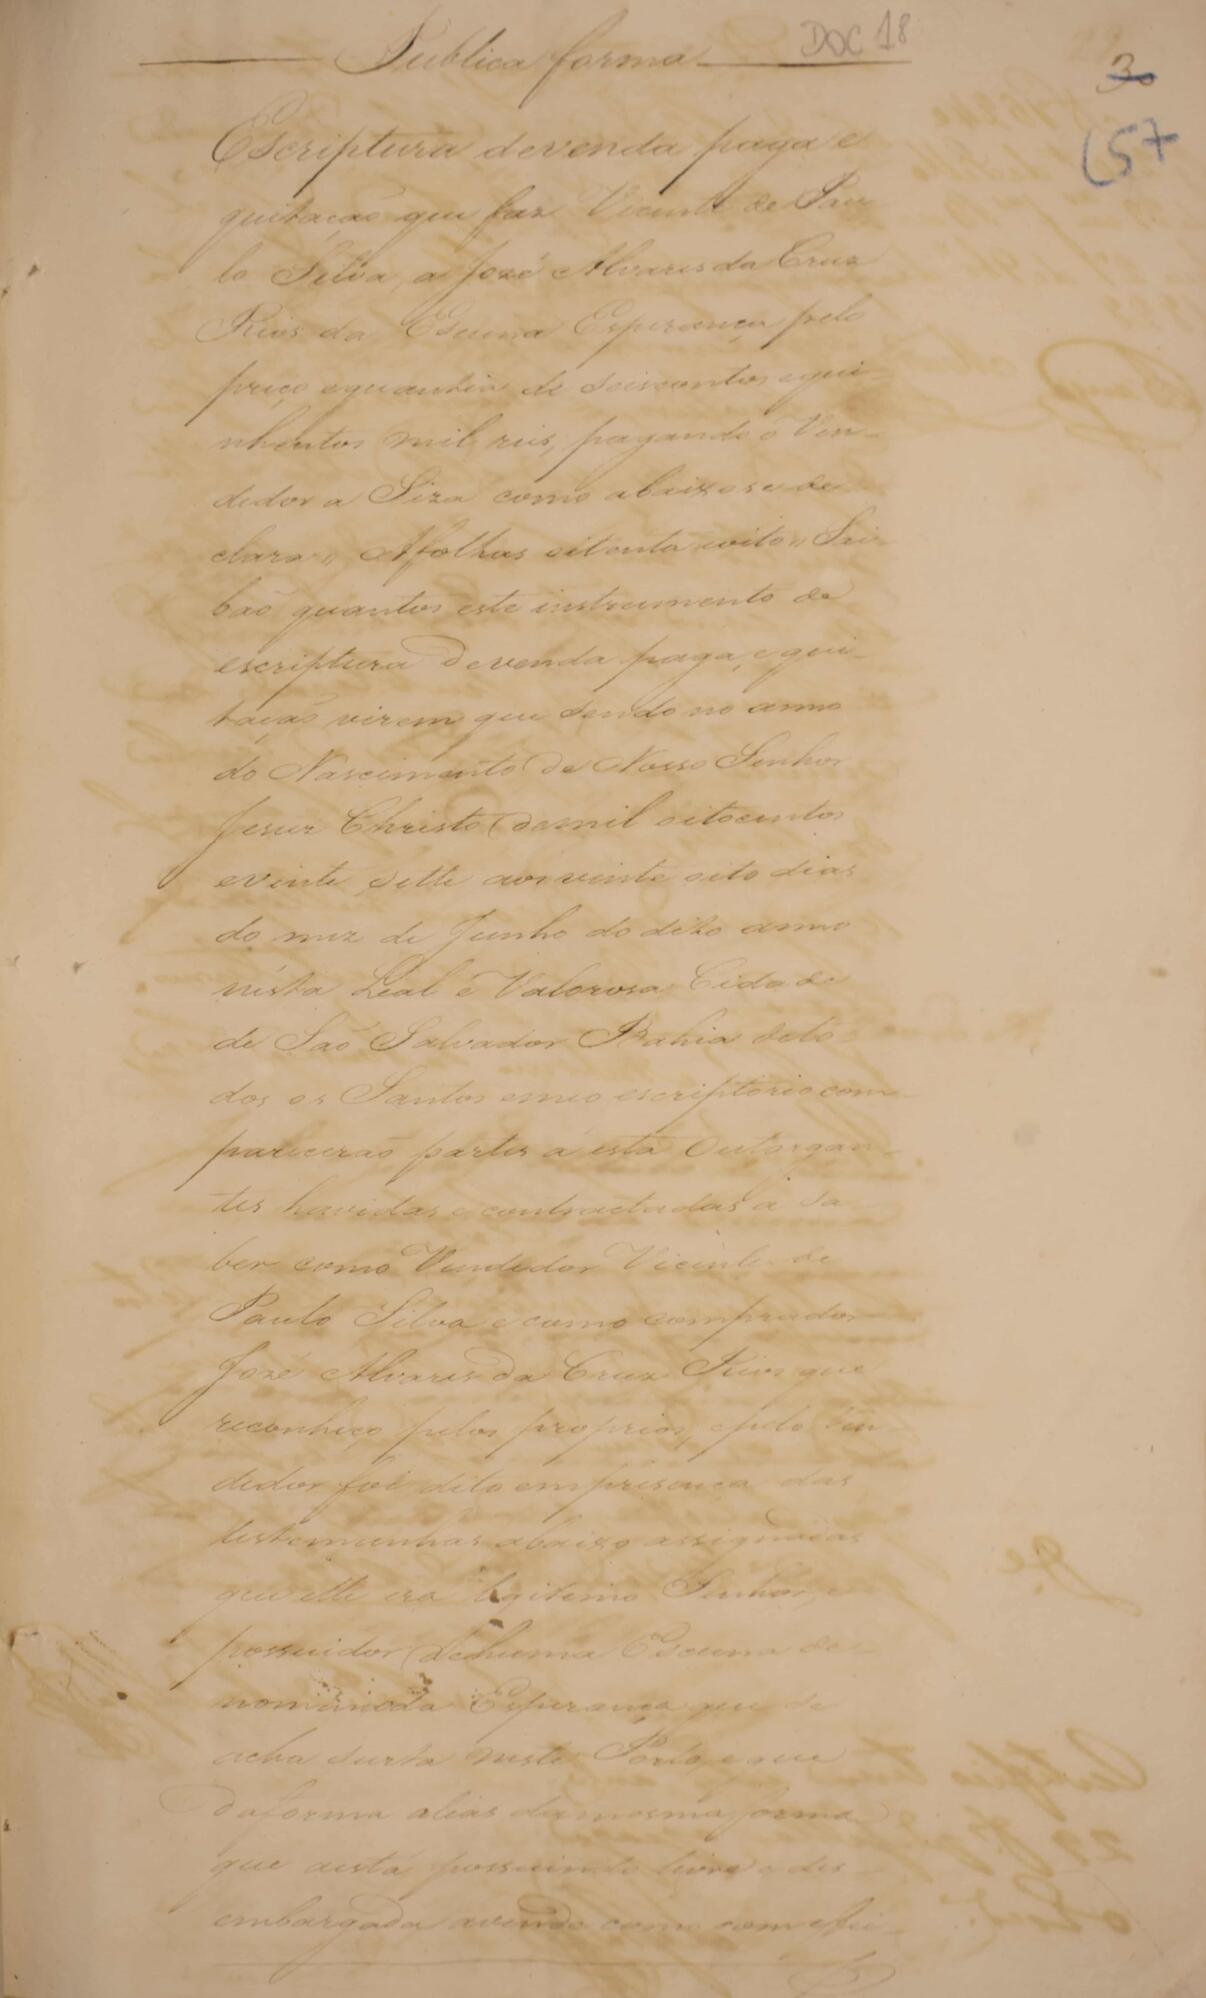 Publica forma
DOC 18
3
157
Escriptura devenda paga e
quitação que faz Vicente de Pau
lo Silva, a José Alvares da Cruz
Rios da Escuna Esperança pelo
preço equantia de seiscontos equi-
nhentos mil reis, pagando o Ven-
dedor a Siza como abaixo se de
clara,, Afolhas oitenta eoito,, Sai-
bão quantos este instrumento de
escriptura devenda paga, e qui-
tação virem que sendo no anno
do Nascimento de Nosso Senhor
Jesus Christo demil oitocentos
evinte sette aos vinte oito dias
do mez de Junho do dito anno
nésta Leal e Valorosa Cidade
de São Salvador Bahia deto-
dos os Santos emeo escriptorio com-
parecerão partes a ésta Outorgan-
tes havidas e contractadas á sa
ber como Vendedor Vicente de
Paulo Silva e como comprador
José Alvares da Cruz Rios que
reconheço pelos proprios, epelo Ven
dedor foi dito em presença das
testemunhas abaixo assignadas
que elle era legitimo Senhor, e
possuidor dehuma Escuna de-
nominada Esperança que se
acha surta neste Porto, e que
daforma alias damesma forma
que aestá possuindo livre e des-
embargada avendo como com effei-